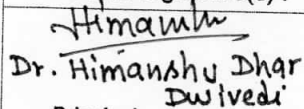 Himanshu
Dr. Himanshu Dhar
Dwivedi